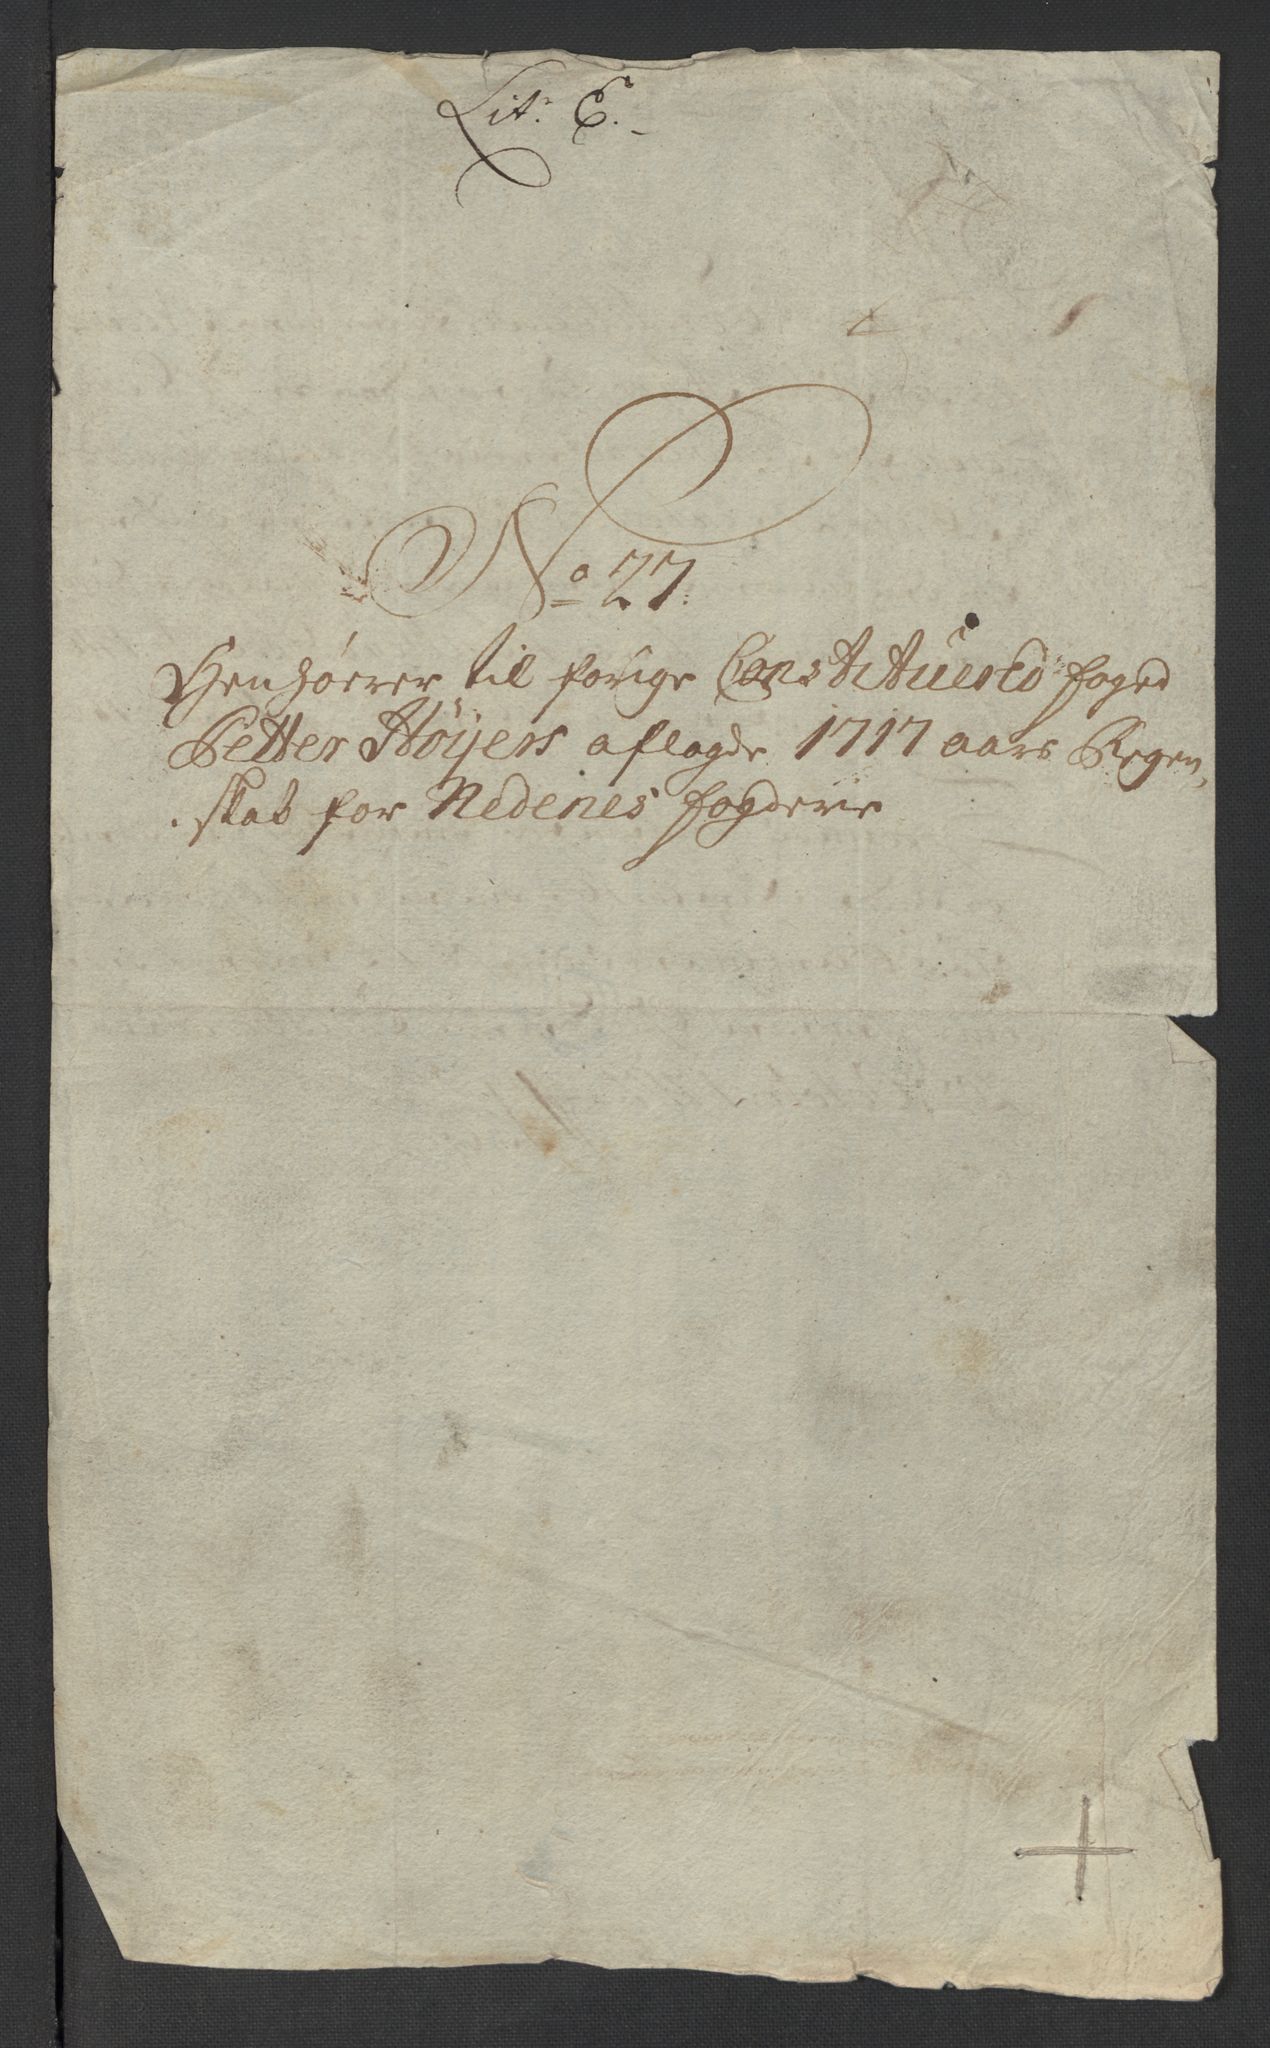 Lit: E.
No 27.
Henhörer til forige Constituered foged
Petter Höyers aflagde 1717 aars Regen,
skab for Nedenes fogderie